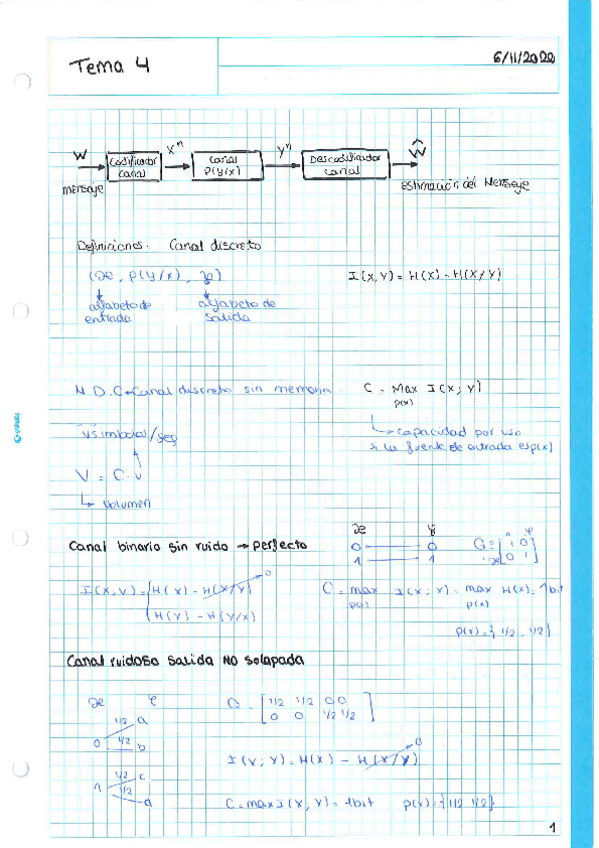 Tema 4
6/11/2020
W
Codificador canal
Xⁿ
Canal P(y/x)
Yⁿ
Descodificador canal
Ŵ
mensaje
Estimación del Mensaje
Definiciones: Canal discreto
(𝒳, p(y/x), 𝒴)
I(X,Y) = H(X) - H(X/Y)
alfabeto de entrada
alfabeto de salida
Canal discreto sin memoria
C = Max I(X;Y)
p(x)
capacidad por uso
si la fuente de entrada es p(x)
V símbolos/seg
V = C · v
Volumen
Canal binario sin ruido → Perfecto
𝒳 𝒴
0 0
1 1
Q = [1 0
0 1]
I(X,Y) = { H(X) - H(X/Y) 0
H(Y) - H(Y/X)
C = max I(X;Y) = max H(X) = 1bit
p(x) p(x)
p(x) = {1/2, 1/2}
Canal ruidoso salida NO solapada
𝒳 𝒴
0 1/2 a
1/2 b
1 1/2 c
1/2 d
Q = [1/2 1/2 0 0
0 0 1/2 1/2]
I(X;Y) = H(X) - H(X/Y) 0
C = max I(X,Y) = 1bit p(x) = {1/2 1/2}
1